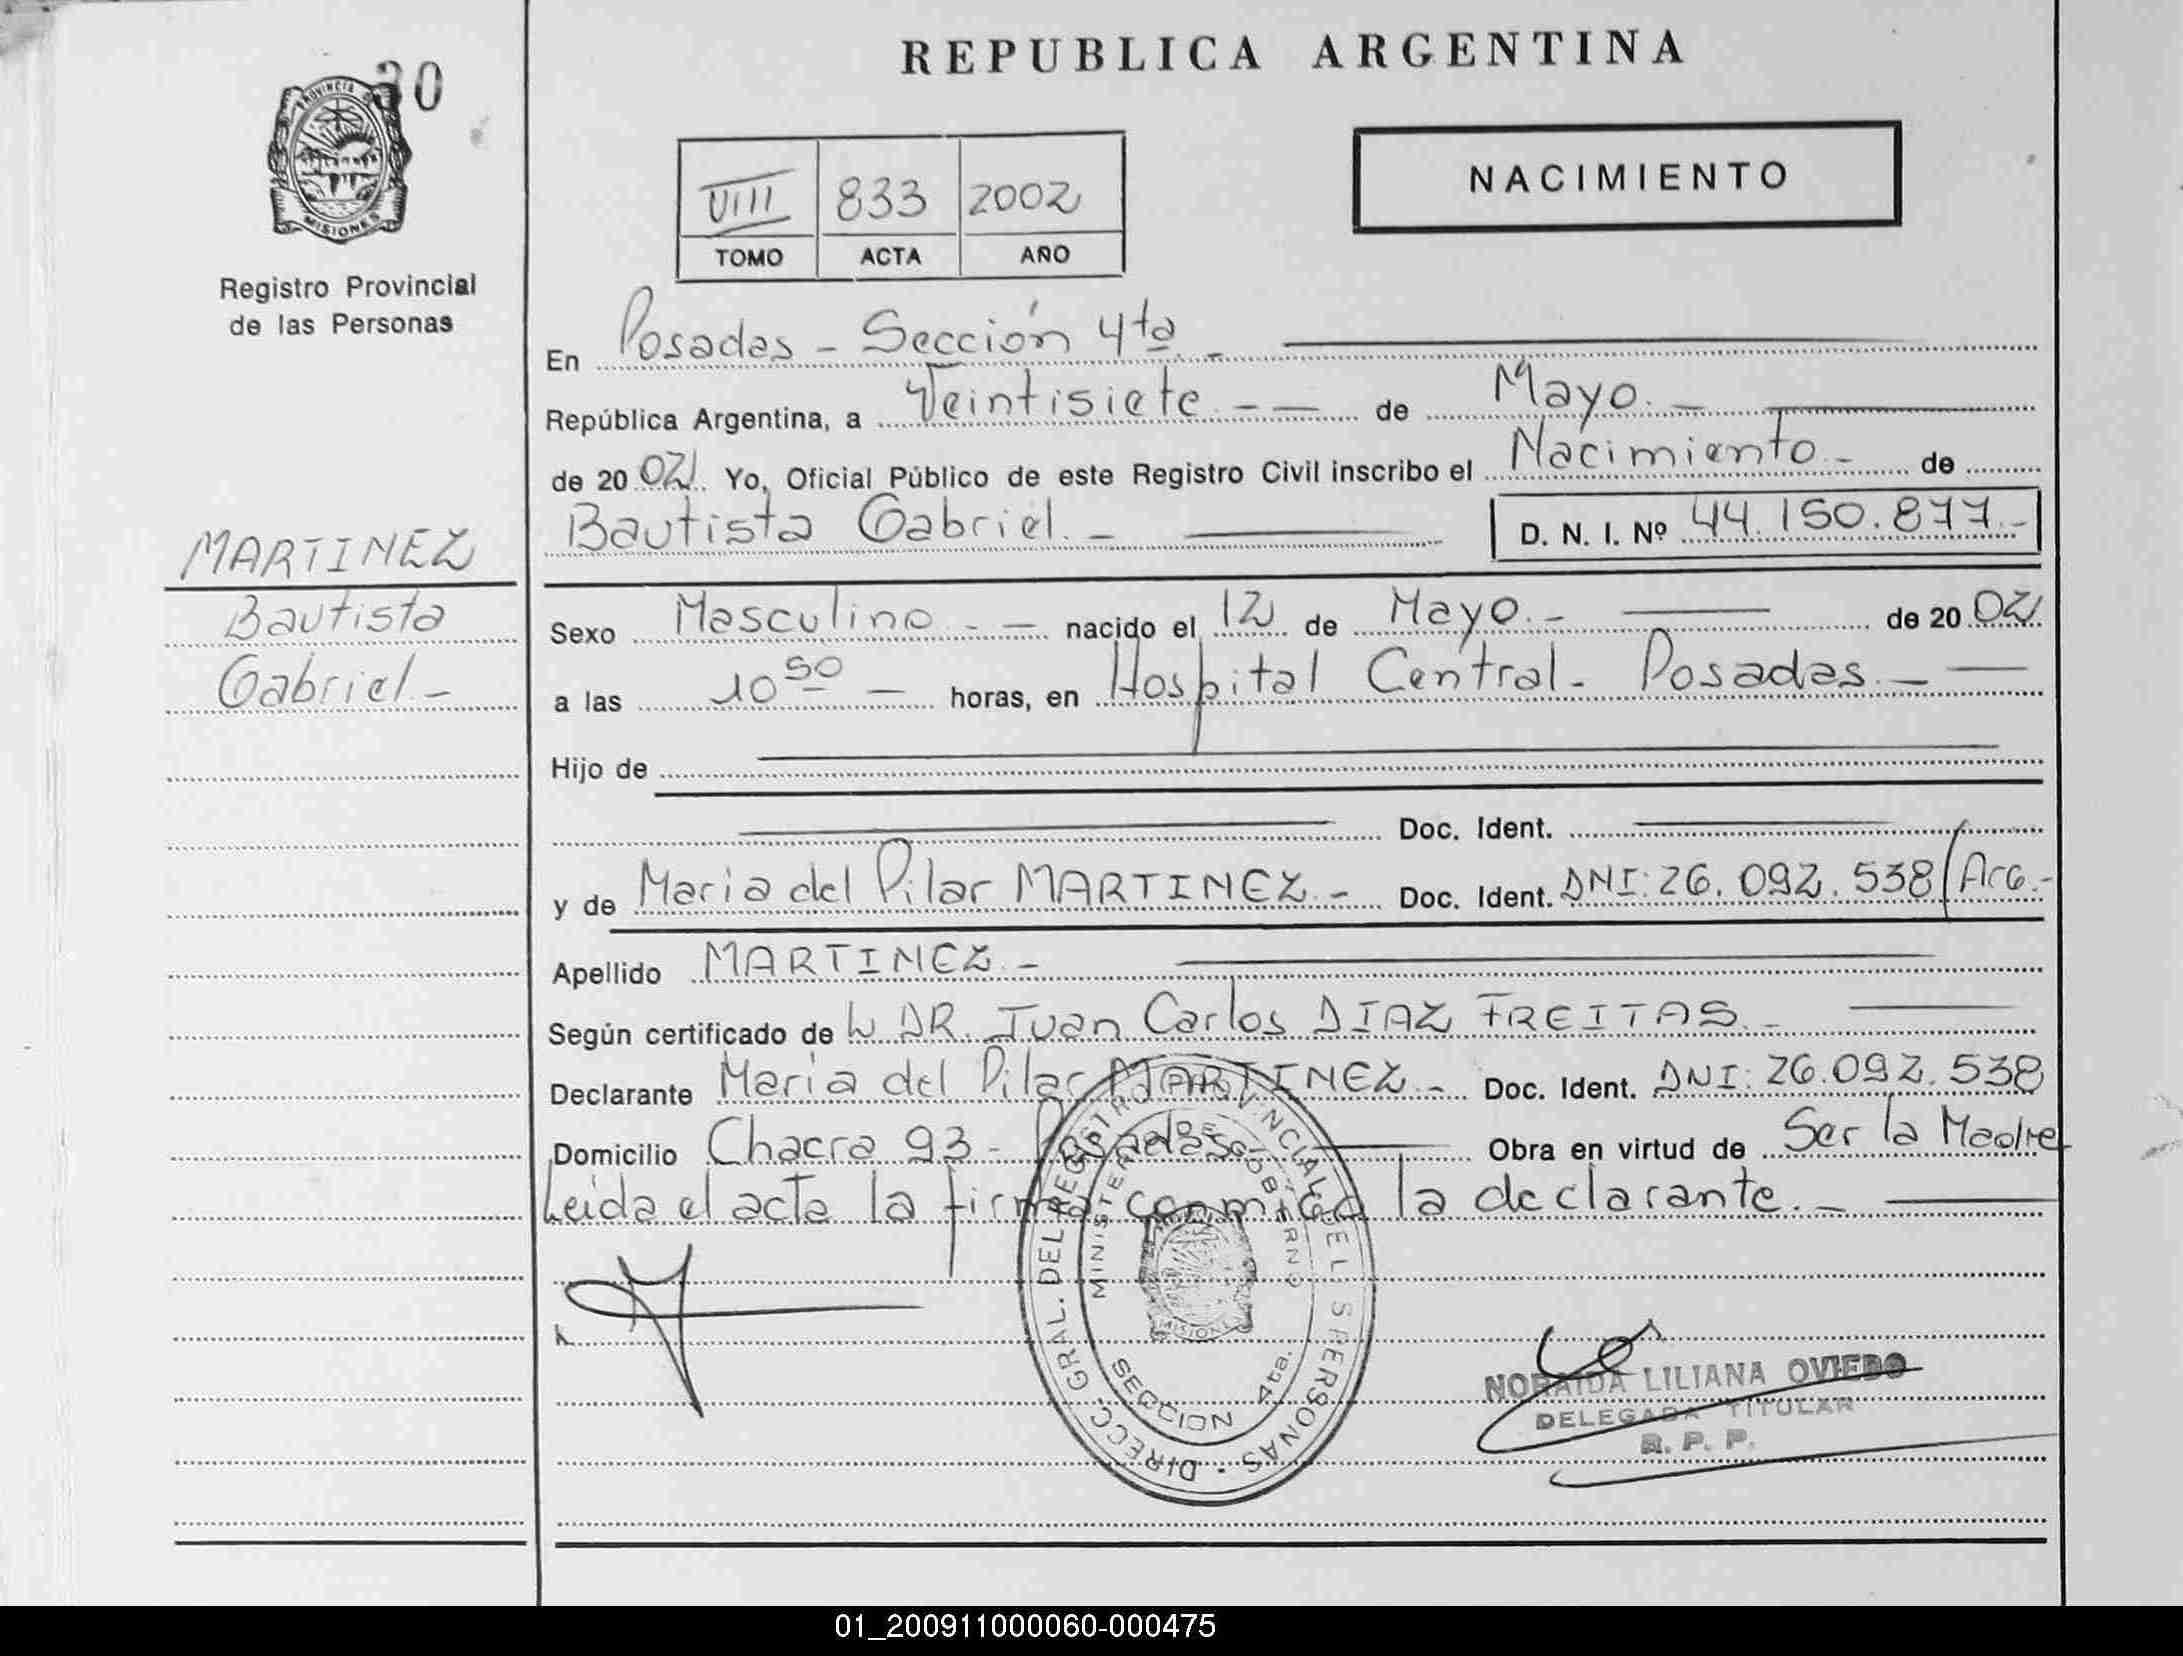 30
PROVINCIA DE
MISIONES
Registro Provincial
de las Personas
MARTINEZ
Bautista
Gabriel.-
REPUBLICA ARGENTINA
VIII 833 2002
TOMO ACTA AÑO
NACIMIENTO
En Posadas - Sección 4ta. -
República Argentina, a Veintisiete. - — de Mayo. -
de 20 02. Yo, Oficial Público de este Registro Civil inscribo el Nacimiento - de
Bautista Gabriel. - D. N. I. Nº 44.150.877.-
Sexo Masculino - — nacido el 12 de Mayo. - de 20 02
a las 10 50 — horas, en Hospital Central - Posadas. -
Hijo de
Doc. Ident.
y de Maria del Pilar MARTINEZ. - Doc. Ident. DNI: 26.092.538/Arg.-
Apellido MARTINEZ. -
Según certificado de DR. Juan Carlos DIAZ FREITAS. -
Declarante Maria del Pilar MARTINEZ. - Doc. Ident. DNI: 26.092.538
Domicilio Chacra 93 - Posadas - Obra en virtud de Ser la Madre
Leida el acta la firma conmigo la declarante. -
DIRECC. GRAL. DEL REGISTRO PROVINCIAL DE LAS PERSONAS
MINISTERIO DE GOBIERNO
MISIONES
SECCION 4ta.
NORAIDA LILIANA OVIEDO
DELEGADA TITULAR
R. P. P.
01_200911000060-000475